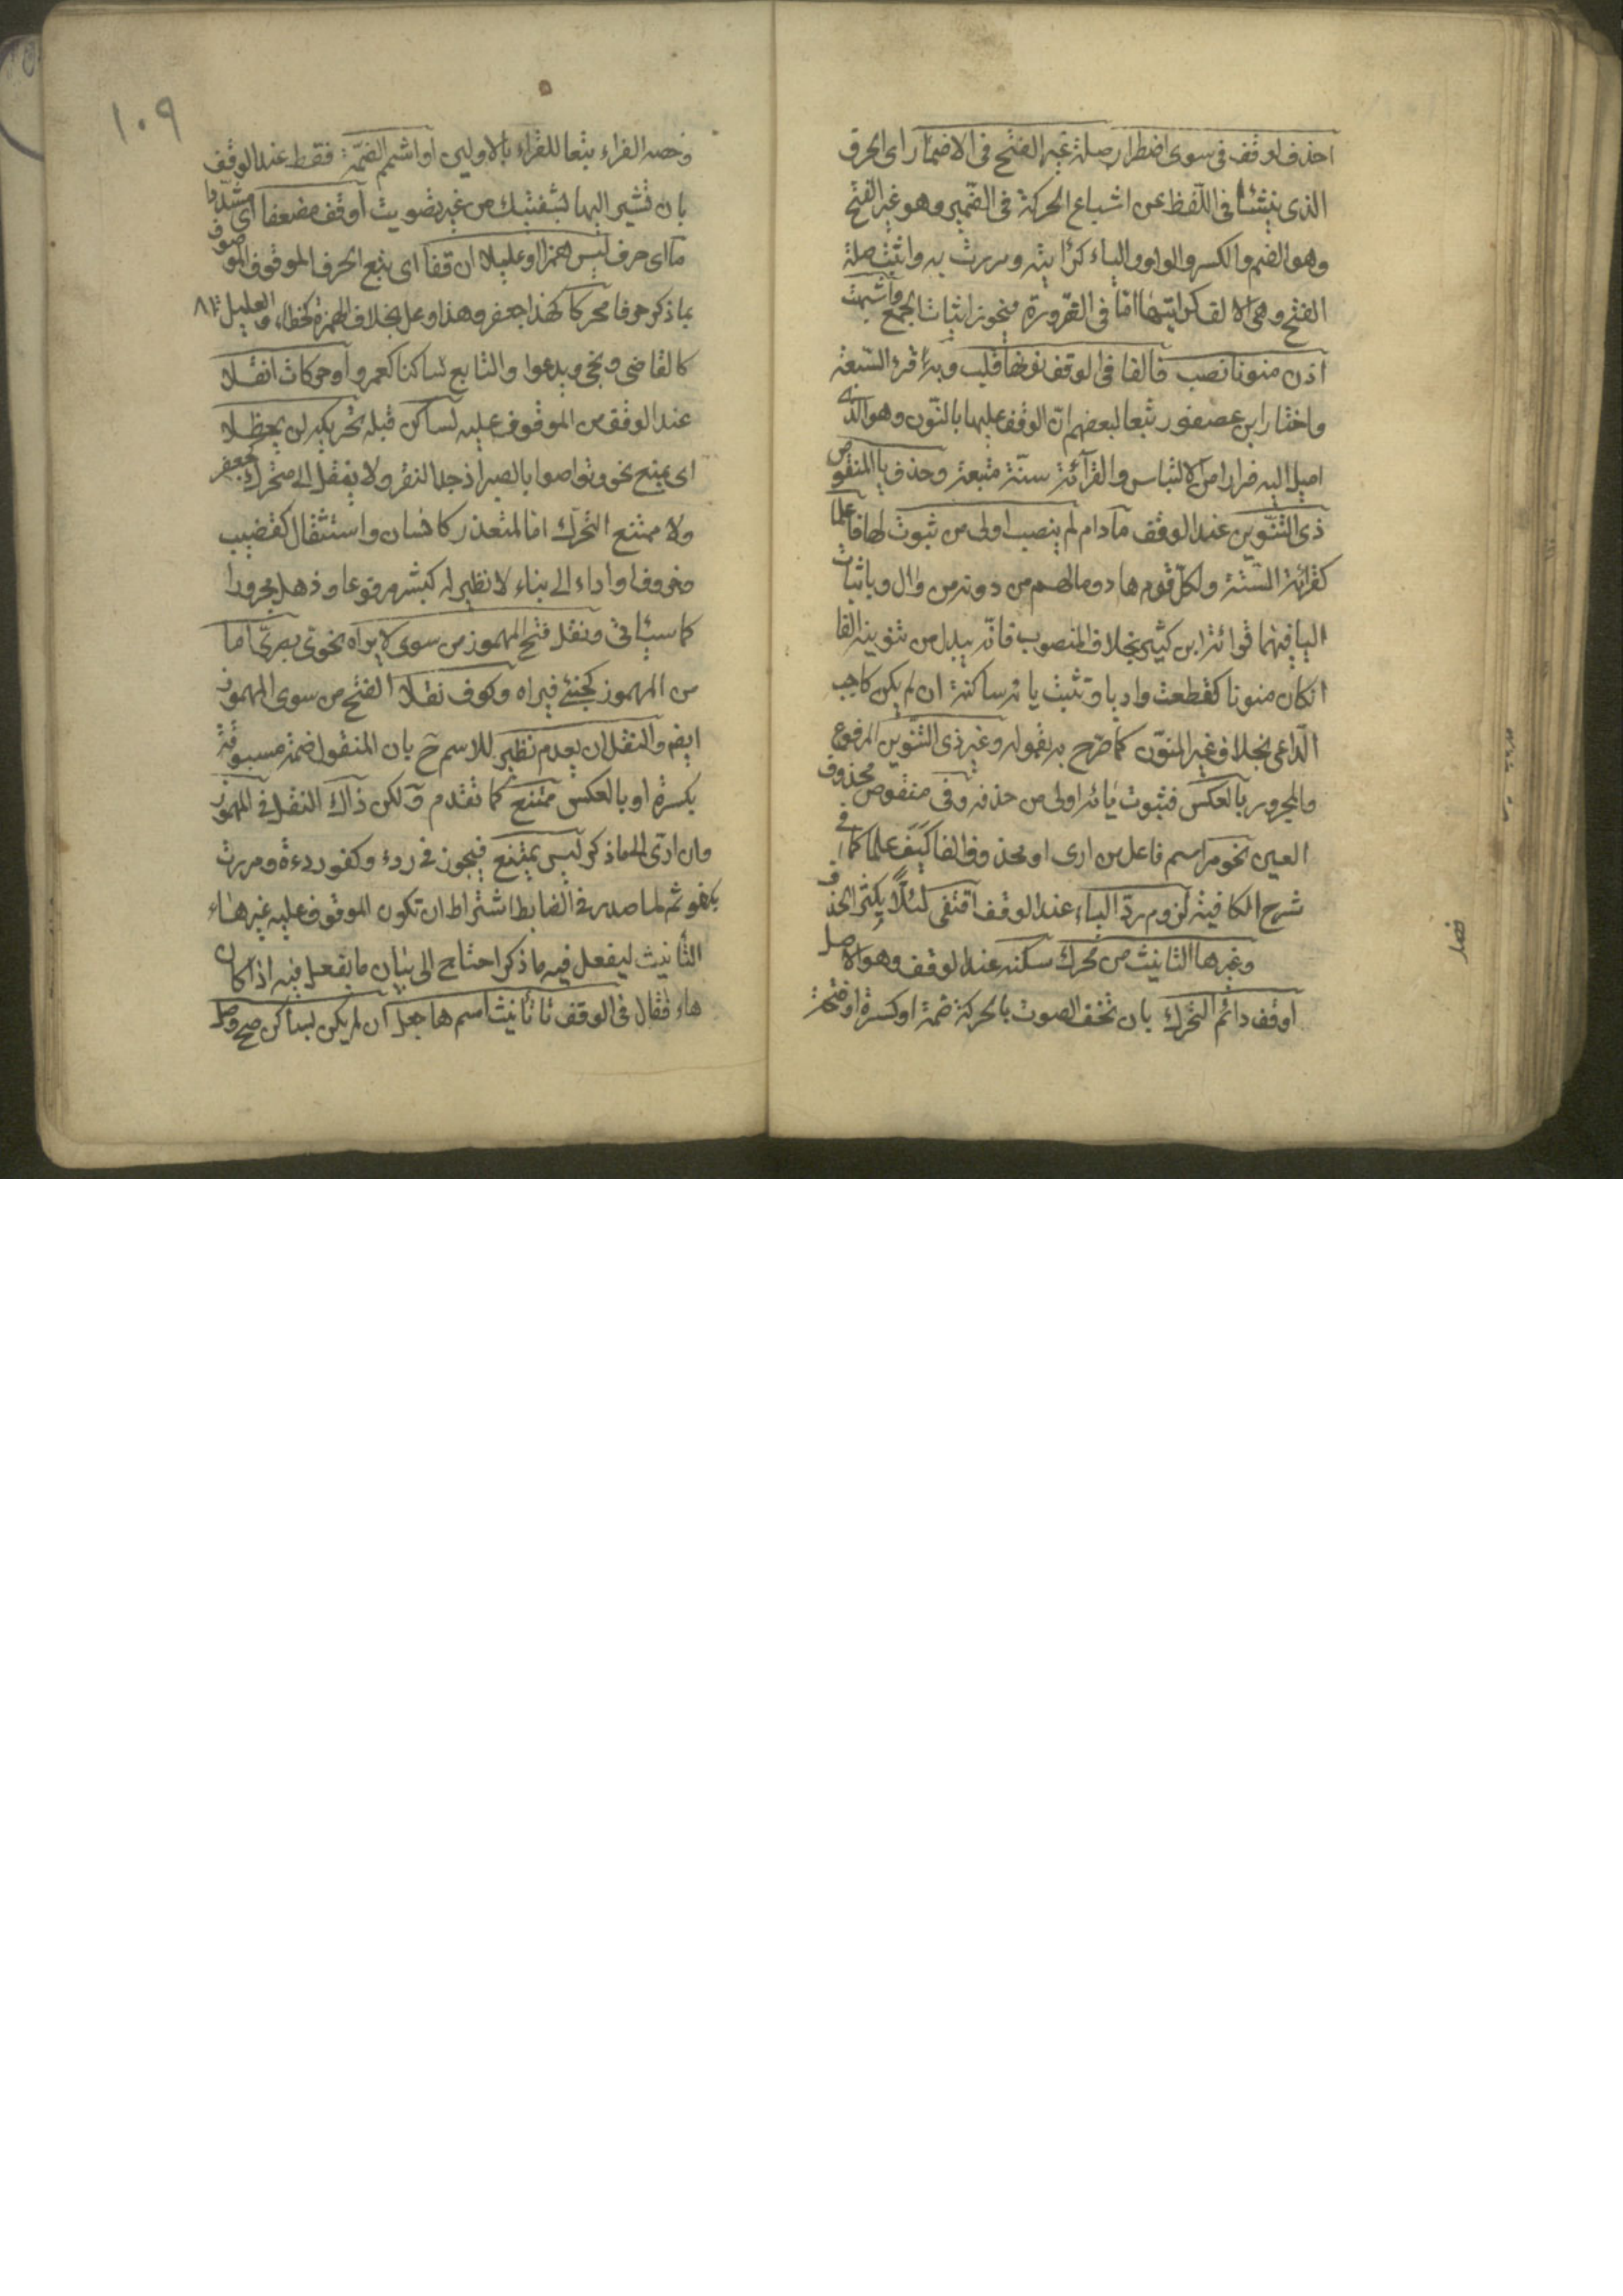 احذف اوقف فى سوى اضطرار صلة غير الفتح فى الاضمار اى الحرف
الذى ينشأ فى اللّفظ عن اشباع الحركة فى الضمير وهو غير الفتح
وهو الضم والكسر والواو والياء كرايته ومررت به واثبت صلة
الفتح وهى الالف كرايتها امّا فى الضّرورة فيجوز اثبات الجمع واشبهت
اذن منونا نصب فالفا فى الوقف نونها قلب وبه قرء السّبعة
واختار ابن عصفور تبعا لبعضهم انّ الوقف عليها بالنّون وهو الذى
اميل اليه فرارا من الالتباس والقرآئة سنّة متبعة وحذف يا المنقوص
ذى التنّوين عند الوقف مادام لم ينصب اولى من ثبوت لها فاعلما
كقرائة السّتّة ولكلّ قوم هاد ومالهم من دونه من وال وباثبات
اليا فيهما قرائة ابن كثير بخلاف المنصوب فانّه يبدل من تنوينه الفا
انكان منونا كقطعت واديا وتثبت يائه ساكنة ان لم يكن كاجب
الدّاعى بخلاف غير المنوّن كما صرّح به بقوله وغير ذى التّنوين المرفوع
والمجرور بالعكس فثبوت يائه اولى من حذفه وفى منقوص محذوف
العين نحو مر اسم فاعل من ارى او محذوف الفا كيف علما كما فى
شرح الكافيه لزوم ردّ الياء عند الوقف اقتفى لئلّا يكثر الحذف
وغيرها التانيث من محرك سكنه عند الوقف وهو الاصل
اوقف رائم التحّرك بان تخف الصوت بالحركة ضمة او كسرة او فتحة
فصل
١٠٩
وخصه الفراء تبعا للقراء بالاولين او اشمم الضمّة فقط عند الوقف
بان تشير اليها بشفتيك من غير تصويت اوقف مضعفا اى مشدّدا
ما اى حرف ليس همزا او عليلا ان قفا اى يتبع الحرف الموقوف الموصوف
بما ذكر حرفا محركا كهذا جعفر وهذا وعل بخلاف الهمزة كخطاء والعليل
كالقاضى ويخى ويدعوا والتابع ساكنا كعمرو وحركات انقلا
عند الوقف من الموقوف عليه لساكن قبله تحريكه لن يحظلا
اى يمنع نحو وتواصوا بالصبر اذ جد النقر ولا ينقل الى متحرك كجعفر
ولا ممتنع التحرّك امّا لتعذر كانسان واستثقال كقضيب
وخروف او اداء الى بناء لانظير له كبشر مرفوعا وذهل مجرورا
كما سيئاتى ونقل فتح المهموز من سوى لا يراه نحوى بصرىّ اما
من المهموز كخبئ فيراه وكوف نقلا الفتح من سوى المهموز
ايضا والنقل ان يعدم نظير للاسم ح بان المنقول ضمة مسبوقة
بكسرة او بالعكس ممتنع كما تقدم ولكن ذاك النقل فى المهموز
وان ادّى الى ماذكر ليس يمتنع فيجوز فى ردء وكفو ردءة ومررت
بكفو ثم لما صدر فى الضابط اشتراط ان تكون الموقوف عليه غير هاء
التأنيث ليفعل فيه ما ذكر احتاج الى بيان ما يفعل فيه اذا كان
هاء فقال فى الوقف تا تأنيث اسم ها جعل ان لم يكن بساكن صح وصل